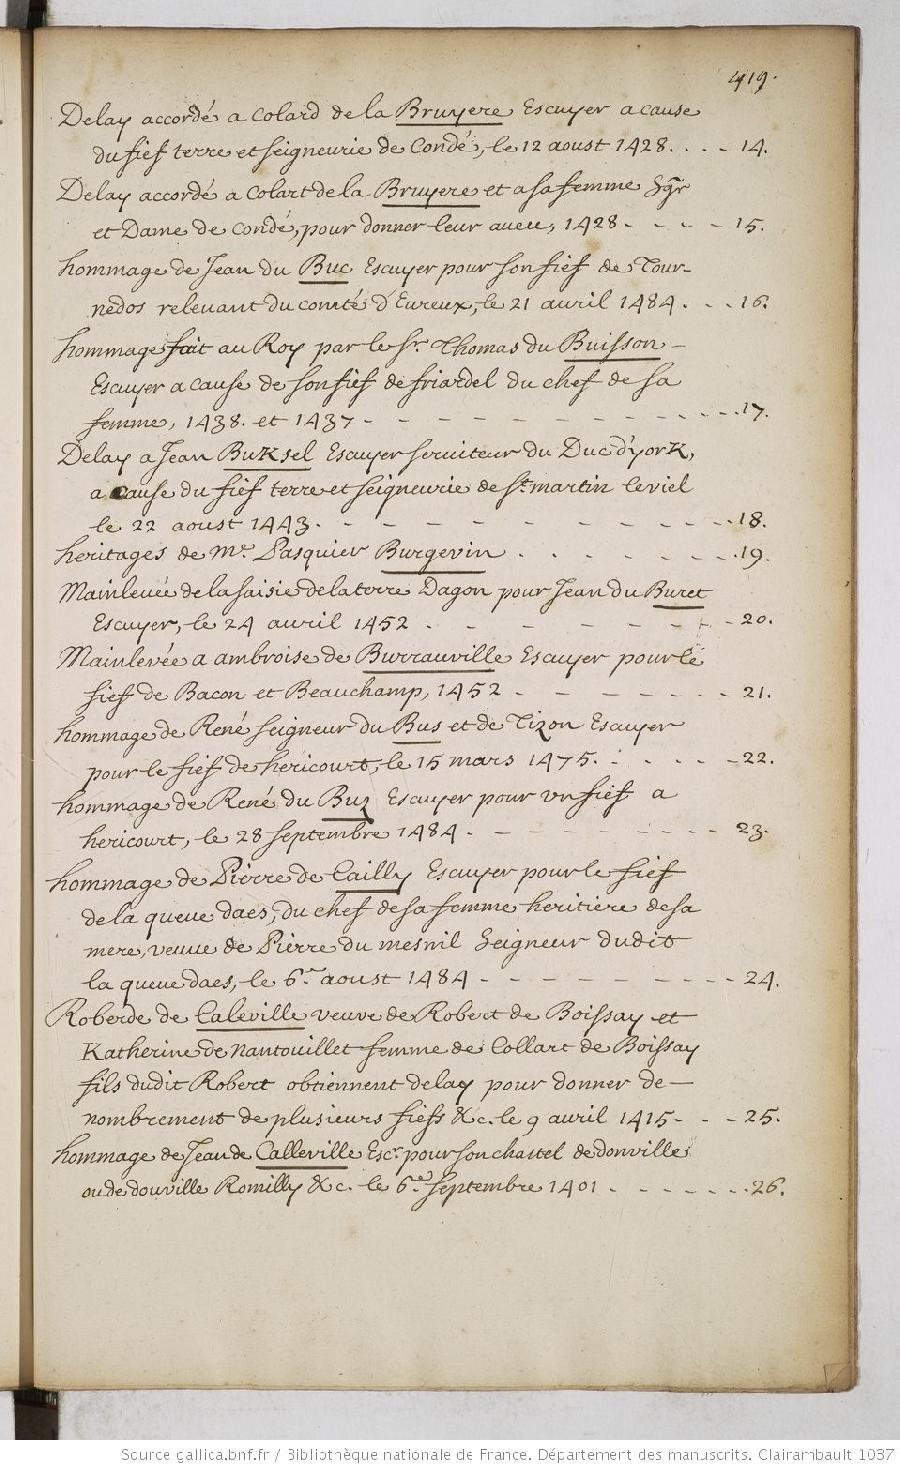 419.
Delay accordé a Colard de la Bruyere Escuyer a cause
du fief terre et seigneurie de Condé, le 12 aoust 1428. . - - 14.
Delay accordé a Colart de la Bruyere et a sa femme Sgr
et Dame de Condé, pour donner leur aveu, 1428 - - - - 15.
hommage de Jean du Buc Escuyer pour son fief de Tour-
nedos relevant du comté d'Evreux, le 21 avril 1484. - - 16.
hommage fait au Roy par le Sr. Thomas du Buisson -
Escuyer a cause de son fief de friardel du chef de sa
femme, 1438. et 1437 - - - - - - - - - - - 17.
Delay a Jean Buksel Escuyer serviteur du Duc d'york,
a cause du fief terre et seigneurie de St. martin le viel
le 22 aoust 1443. - - - - - - - - - - 18.
heritages de Mr. Pasquier Burgevin . . . . . . . 19.
Mainlevée de la saisie de la terre Dagon pour Jean du Buret
Escuyer, le 24 avril 1452 . - - - - - - - 20.
Mainlevée a ambroise de Burrauville Escuyer pour le
fief de Bacon et Beauchamp, 1452 - - - - - - 21.
hommage de René seigneur du Bus et de Tizon Escuyer
pour le fief de hericourt, le 15 mars 1475. - - - - - 22.
hommage de René du Buz Escuyer pour un fief a
hericourt, le 28 septembre 1484 - - - - - - - - 23.
hommage de Pierre de Cailly Escuyer pour le fief
de la queue daes, du chef de sa femme heritiere de sa
mere, veuve de Pierre du mesnil Seigneur dudit
la queue daes, le 6e. aoust 1484 - - - - - - - - 24.
Roberde de Caleville veuve de Robert de Boissay et
Katherine de Nantouillet femme de Collart de Boissay
fils dudit Robert obtiennent delay pour donner de-
nombrement de plusieurs fiefs &c. le 9 avril 1415 - - - 25.
hommage de Jean de Calleville Escr. pour son chastel de donville
ou de douville Romilly &c. le 6e. septembre 1401 . - - - - - 26.
Source gallica.bnf.fr / Bibliothèque nationale de France. Département des manuscrits. Clairambault 1037